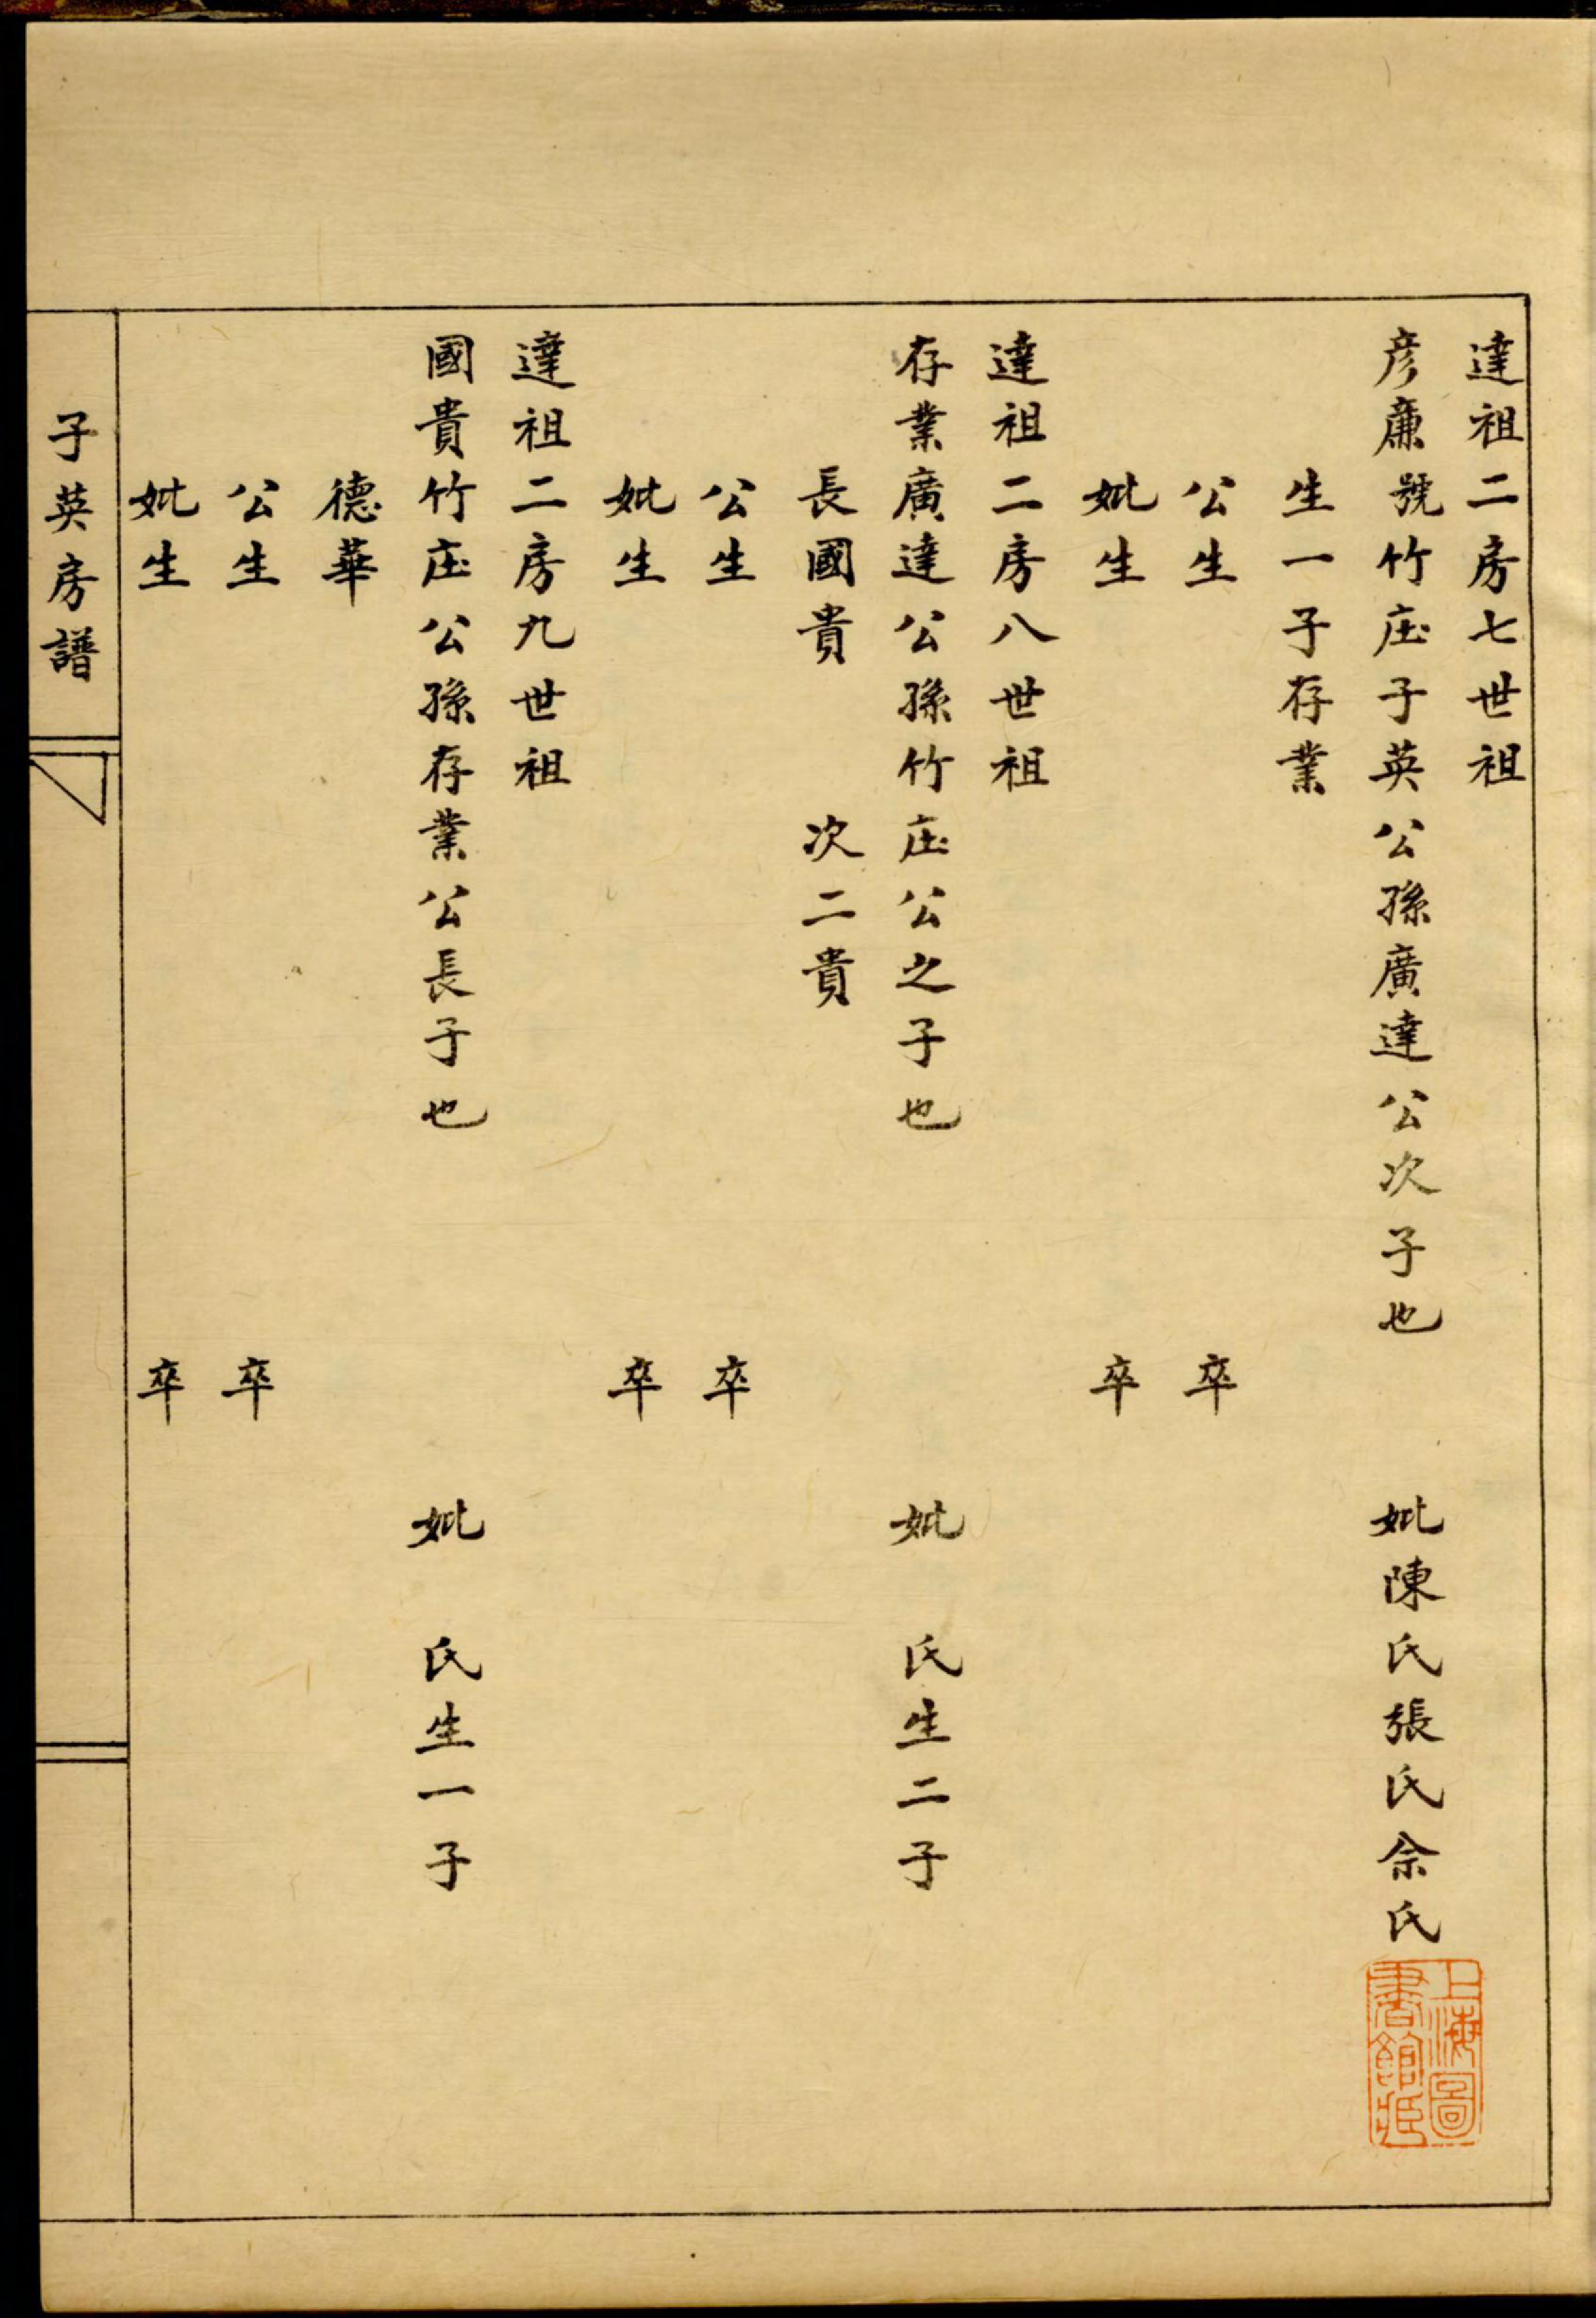 達祖二房七世祖
彦廉號竹庄子英公孫廣達公次子也 妣陳氏張氏佘氏
生一子存業
公生 卒
妣生 卒
達祖二房八世祖
存業廣達公孫竹庄公之子也 妣 氏生二子
長國貴 次二貴
公生 卒
妣生 卒
達祖二房九世祖
國貴竹庄公孫存業公長子也 妣 氏生一子
德華
公生 卒
妣生 卒
子英房譜
上海圖
書館藏